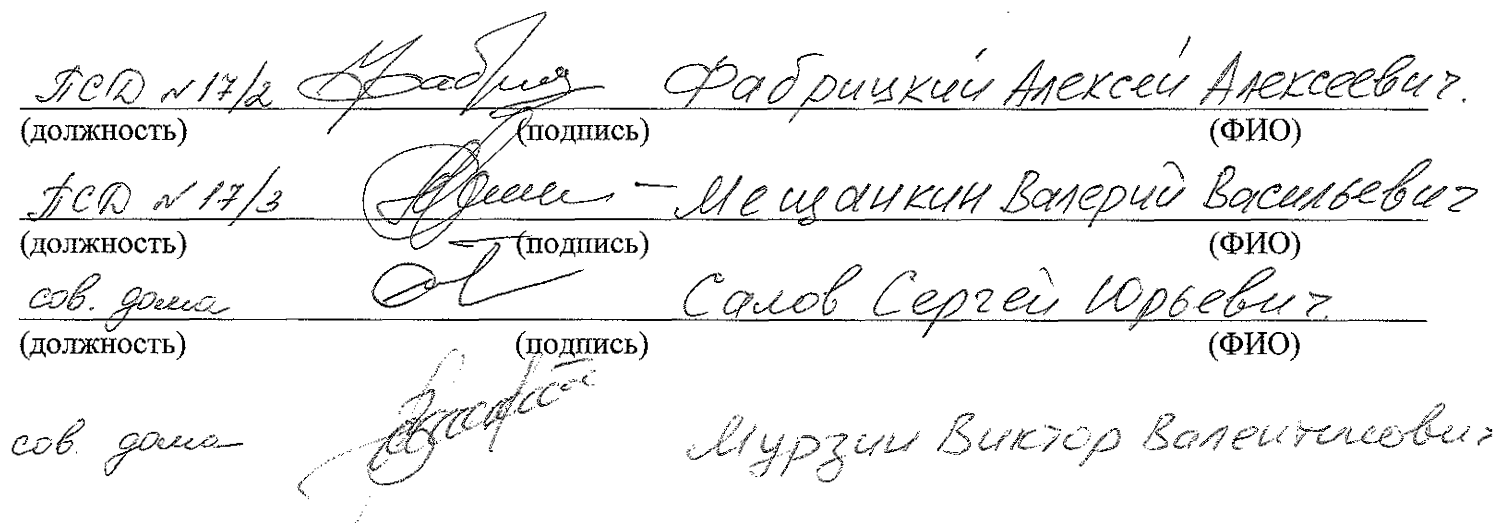 ПСД № 17/2 Фабриц Фабрицкий Алексей Алексеевич.
(должность) (подпись) (ФИО)
ПСД № 17/3 Мещанкин Валерий Васильевич
(должность) (подпись) (ФИО)
сов. дома Салов Сергей Юрьевич.
(должность) (подпись) (ФИО)
сов. дома Мурзин Виктор Валентинович